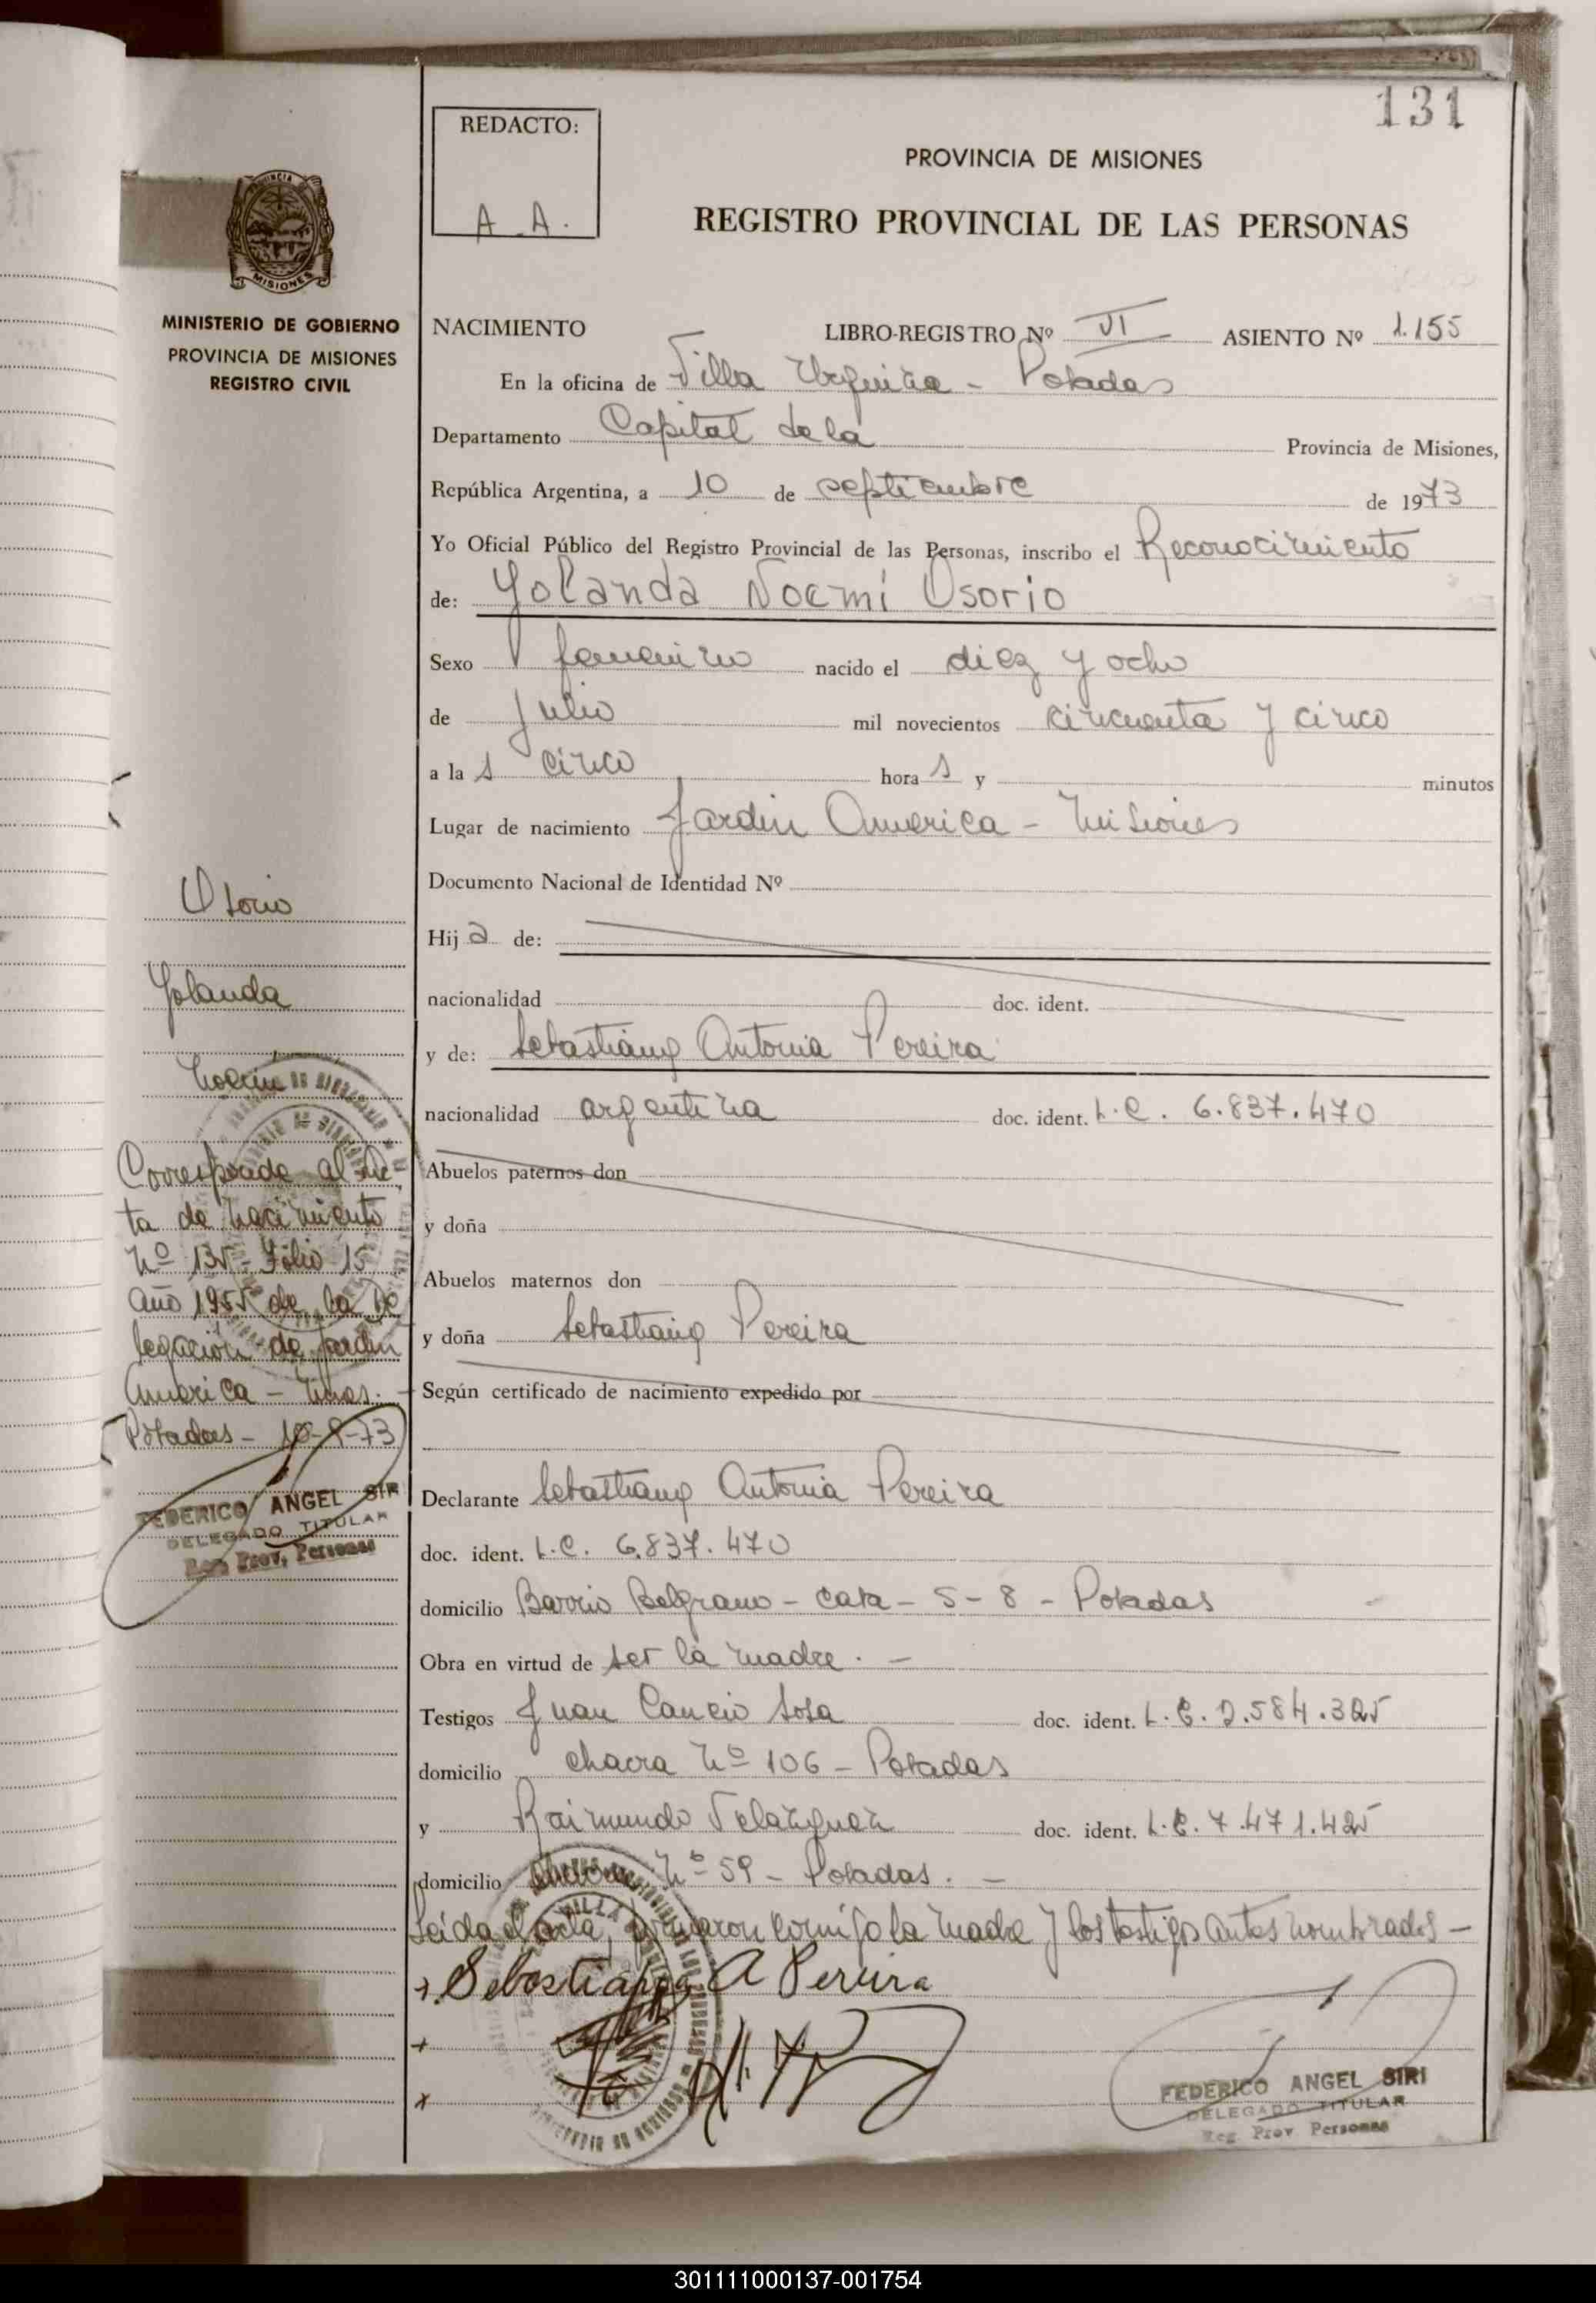 131
REDACTO:
A.A.
PROVINCIA DE MISIONES
REGISTRO PROVINCIAL DE LAS PERSONAS
PROVINCIA
MISIONES
MINISTERIO DE GOBIERNO
PROVINCIA DE MISIONES
REGISTRO CIVIL
NACIMIENTO LIBRO-REGISTRO Nº VI ASIENTO Nº 1.155
En la oficina de Villa Urquiza - Posadas
Departamento Capital de la Provincia de Misiones,
República Argentina, a 10 de septiembre de 1973
Yo Oficial Público del Registro Provincial de las Personas, inscribo el Reconocimiento
de: Yolanda Noemí Osorio
Sexo femenino nacido el diez y ocho
de Julio mil novecientos cincuenta y cinco
a la s cinco hora s y minutos
Lugar de nacimiento Jardin America - Misiones
Documento Nacional de Identidad Nº
Hij a de:
nacionalidad doc. ident.
y de: Sebastiana Antonia Pereira
nacionalidad argentina doc. ident. L.C. 6.837.470
Abuelos paternos don
y doña
Abuelos maternos don
y doña Sebastiana Pereira
Según certificado de nacimiento expedido por
Declarante Sebastiana Antonia Pereira
doc. ident. L.C. 6.837.470
domicilio Barrio Belgrano - casa - S - 8 - Posadas
Obra en virtud de ser la madre. -
Testigos Juan Cancio Sosa doc. ident. L.E. 2.584.325
domicilio chacra Nº 106 - Posadas
y Raimundo Velazquez doc. ident. L.E. 7.471.425
domicilio chacra Nº 59 - Posadas. -
Leída el acta, firmaron conmigo la madre y los testigos antes nombrados -
Sebastiana A Pereira
FEDERICO ANGEL SIRI
DELEGADO TITULAR
Reg Prov Personas
Osorio
Yolanda
Noemí
Corresponde al Ac
ta de nacimiento
Nº 135 - Folio 15
año 1955 de la De
legación de Jardin
America - Mnes. -
Posadas - 10-9-73
FEDERICO ANGEL SIRI
DELEGADO TITULAR
Reg Prov. Personas
301111000137-001754